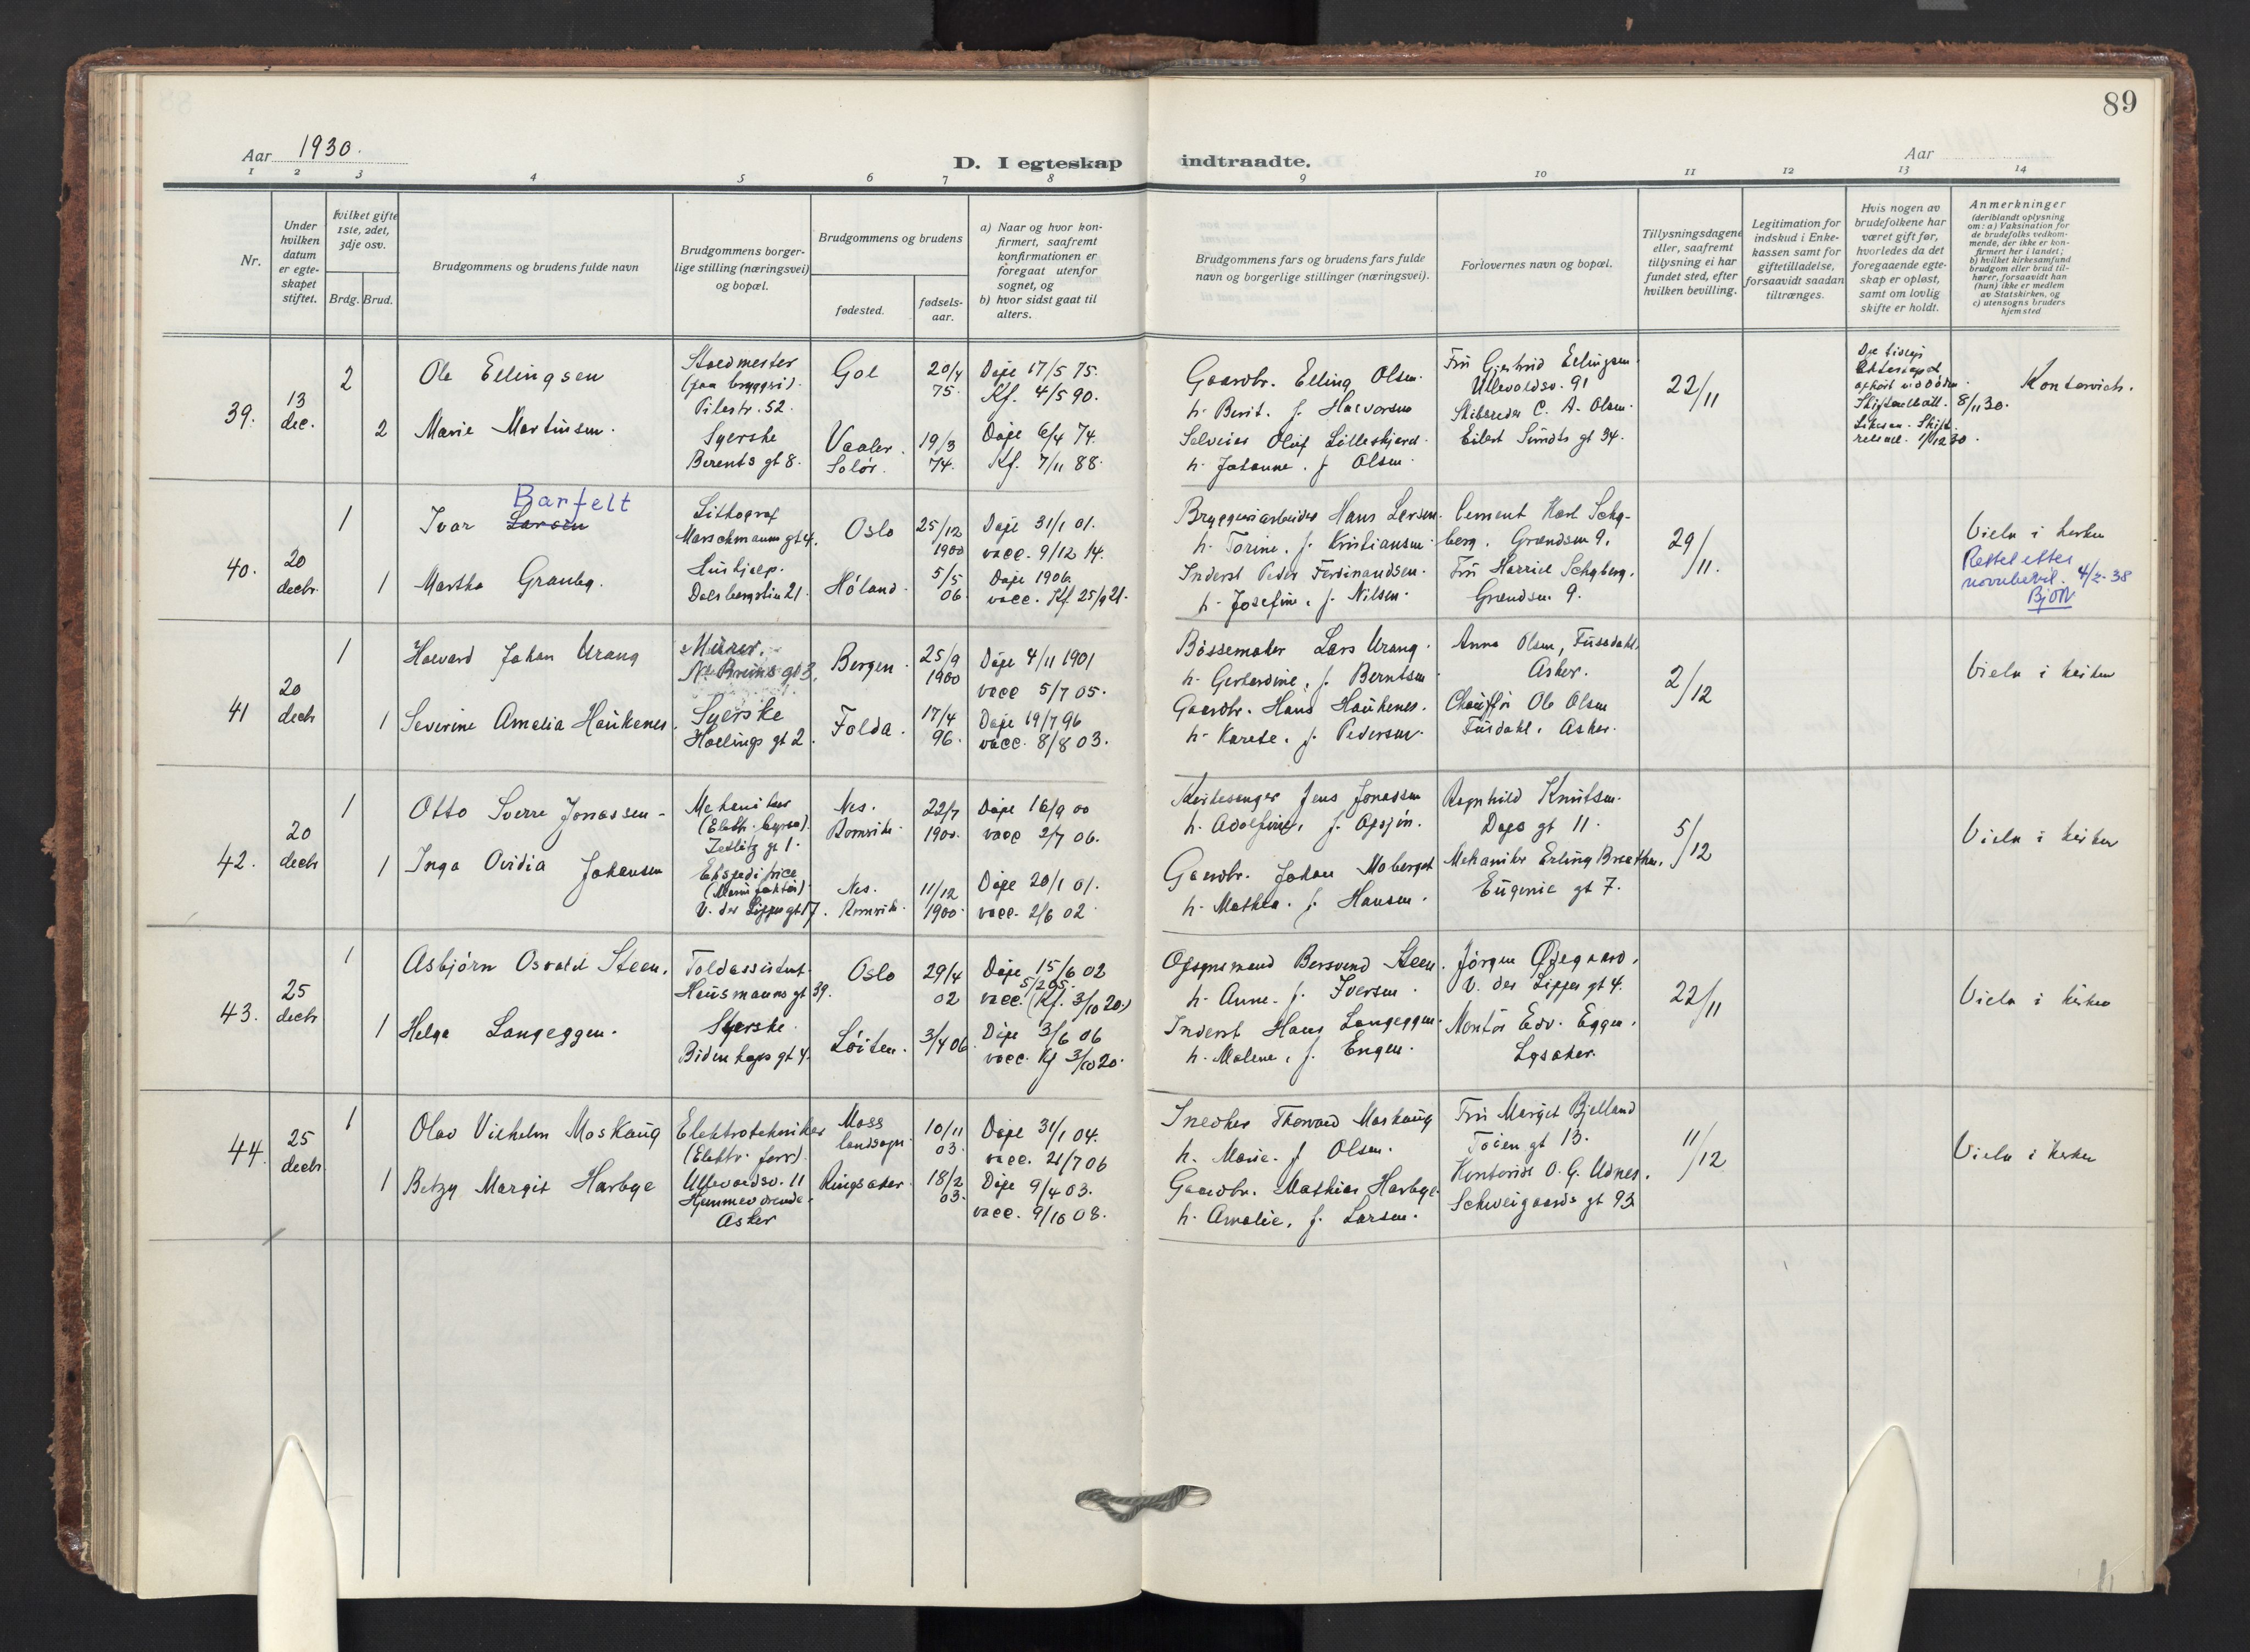 89
Aar 1930.
D. I egteskap indtraadte.
Aar
1 2 3 4 5 6 7 8 9 10 11 12 13 14
Nr.
Under
hvilken
datum
er egte-
skapet
stiftet.
hvilket gifte
1ste, 2det,
3dje osv.
Brdg. Brud.
Brudgommens og brudens fulde navn
Brudgommens borger-
lige stilling (næringsvei)
og bopæl.
Brudgommens og brudens
fødested.
fødsels-
aar.
a) Naar og hvor kon-
firmert, saafremt
konfirmationen er
foregaat utenfor
sognet, og
b) hvor sidst gaat til
alters.
Brudgommens fars og brudens fars fulde
navn og borgerlige stillinger (næringsvei).
Forlovernes navn og bopæl.
Tillysningsdagene
eller, saafremt
tillysning ei har
fundet sted, efter
hvilken bevilling.
Legitimation for
indskud i Enke-
kassen samt for
giftetilladelse,
forsaavidt saadan
tiltrænges.
Hvis nogen av
brudefolkene har
været gift før,
hvorledes da det
foregaaende egte-
skap er opløst,
samt om lovlig
skifte er holdt.
Anmerkninger
(deriblandt oplysning
om: a) Vaksination for
de brudefolks vedkom-
mende, der ikke er kon-
firmert her i landet;
b) hvilket kirkesamfund
brudgom eller brud til-
hører, forsaavidt han
(hun) ikke er medlem
av Statskirken, og
c) utensogns bruders
hjemsted
39.
13
dec.
2
Ole Ellingsen
Staldmester
(paa bryggeri).
Pilestr. 52.
Gol
20/4
75.
Døpt 17/5 75.
Kf. 4/5 90.
2
Marie Martinsen.
Syerske
Berents gt 8.
Vaaler.
Solør.
19/3
74.
Døpt 6/4 74.
Kf. 7/11 88.
Gaardbr. Elling Olsen.
h. Berit. f. Halvorsen
Selveier Oluf Lilleskjæret.
h. Johanne. f. Olsen.
Fru Gjertrud Ellingsen.
Ullevoldsv. 91
Skibsreder C. A. Olsen.
Eilert Sundts gt 34.
22/11
8/11 30.
Kontorvich.
40.
20
decbr.
1
Ivar Larsen
Barfelt
Lithograf
Oslo
25/12
1900
Døpt 31/1 01.
vacc. 9/12 14.
1
Martha Granby.
Hushjælp.
Dalsbergstien 21.
Høland.
5/5
06.
Døpt 1906.
vacc. Kf. 25/9 21.
Bryggeriarbeider Hans Larsen.
h. Torine. f. Kristiansen.
Inderst Peder Ferdinandsen.
h. Josefine. f. Nilsen.
Grændsen 9.
Grændsen 9.
29/11.
Viela i kirken
Rettet efter
navnbevil. 4/2-38
41
20
decbr
1
Halvard Johan Urang
Murer.
Bergen.
25/9
1900
Døpt 4/11 1901
vacc 5/7 05.
1
Severine Amalia Haukenes.
Syerske
Hallings gt 2.
Folda.
17/4
96.
Døpt 19/7 96
vacc. 8/8 03.
Bøssemaker Lars Urang.
h. Gerhardine, f. Berntsen
Gaardbr. Hans Haukenes.
h. Karete. f. Pedersen.
Anna Olsen, Fusdahl,
Asker.
Chauffør Ole Olsen
Fusdahl. Asker.
2/12
Viela i kirken
42.
20
decbr
1
Otto Sverre Jonassen
Mekaniker
Zetlitz gt 1.
Nes.
Romerike.
22/7
1900.
Døpt 16/9 00
vacc 2/7 06.
1
Inga Ovidia Johansen
Ekspeditrice
V. der Lippes gt 17.
Nes.
Romerike.
11/12
1900.
Døpt 20/1 01.
vacc. 2/6 02
Kirkesanger Jens Jonassen
h. Adolfine, f. Opsjøn.
Gaardbr. Johan Moberget
h. Mathea. f. Hansen.
Ragnhild Knutsen.
Dags gt 11.
Mekaniker Erling Braathen.
Eugenie gt 7.
5/12
Viela i kirken
43.
25
decbr
1
Asbjørn Osvald Steen.
Toldassistent.
Hausmanns gt 39.
Oslo
29/4
02
Døpt 15/6 02
5/2 05.
vacc. (Kf. 3/10 20.)
1
Helga Langeggen.
Syerske.
Bidenkaps gt 4.
Løiten.
3/4 06
Døpt 3/6 06
vacc. Kf 3/10 20.
Opsynsmand Bersvend Steen.
h. Anne. f. Iversen.
Inderst Hans Langeggen.
h. Malene, f. Engen.
Jørgen Ødegaard.
V. der Lippes gt 4.
Montør Edv. Eggen.
Lysaker.
22/11
Viela i kirken
44.
25
decbr
1
Olav Vilhelm Moskaug
Elektrotekniker
(Elektr. forr.).
Ullevoldsv. 11
Moss
landsogn
10/11
03.
Døpt 31/1 04.
vacc. 21/7 06
1
Betzy Margit Harbye
Hjemmeværende.
Asker
Ringsaker.
18/2
03.
Døpt 9/4 03.
vacc. 9/10 08.
Snedker Thorvald Moskaug
h. Marie. f Olsen.
Gaardbr. Mathias Harbye.
h. Amalie. f. Larsen.
Fru Margit Bjelland
Tøien gt 13.
Kontorist O. G. Udnes.
Schweigaards gt 93
11/12
Viela i kirken